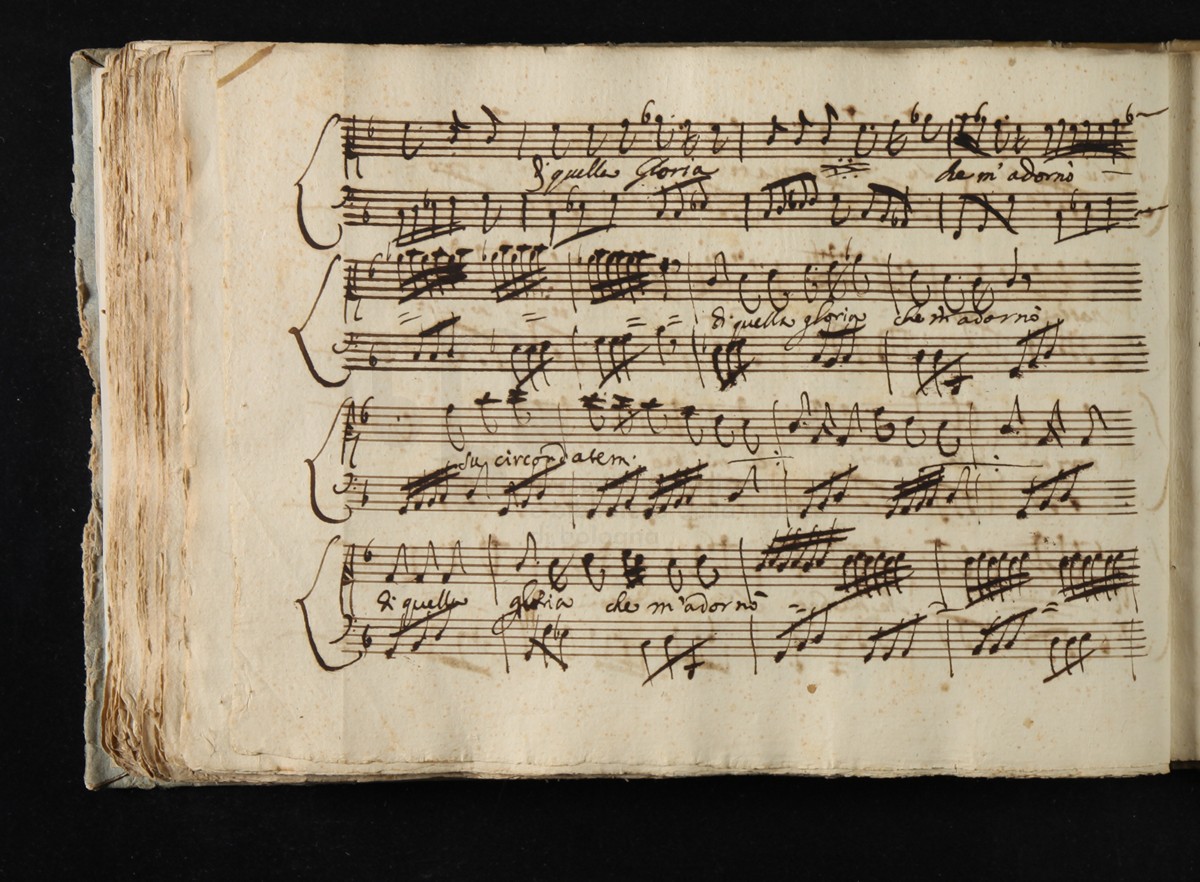 di quella Gloria che m'adornò
di quella gloria che m'adornò
su circondatem:
di quella gloria che m'adornò